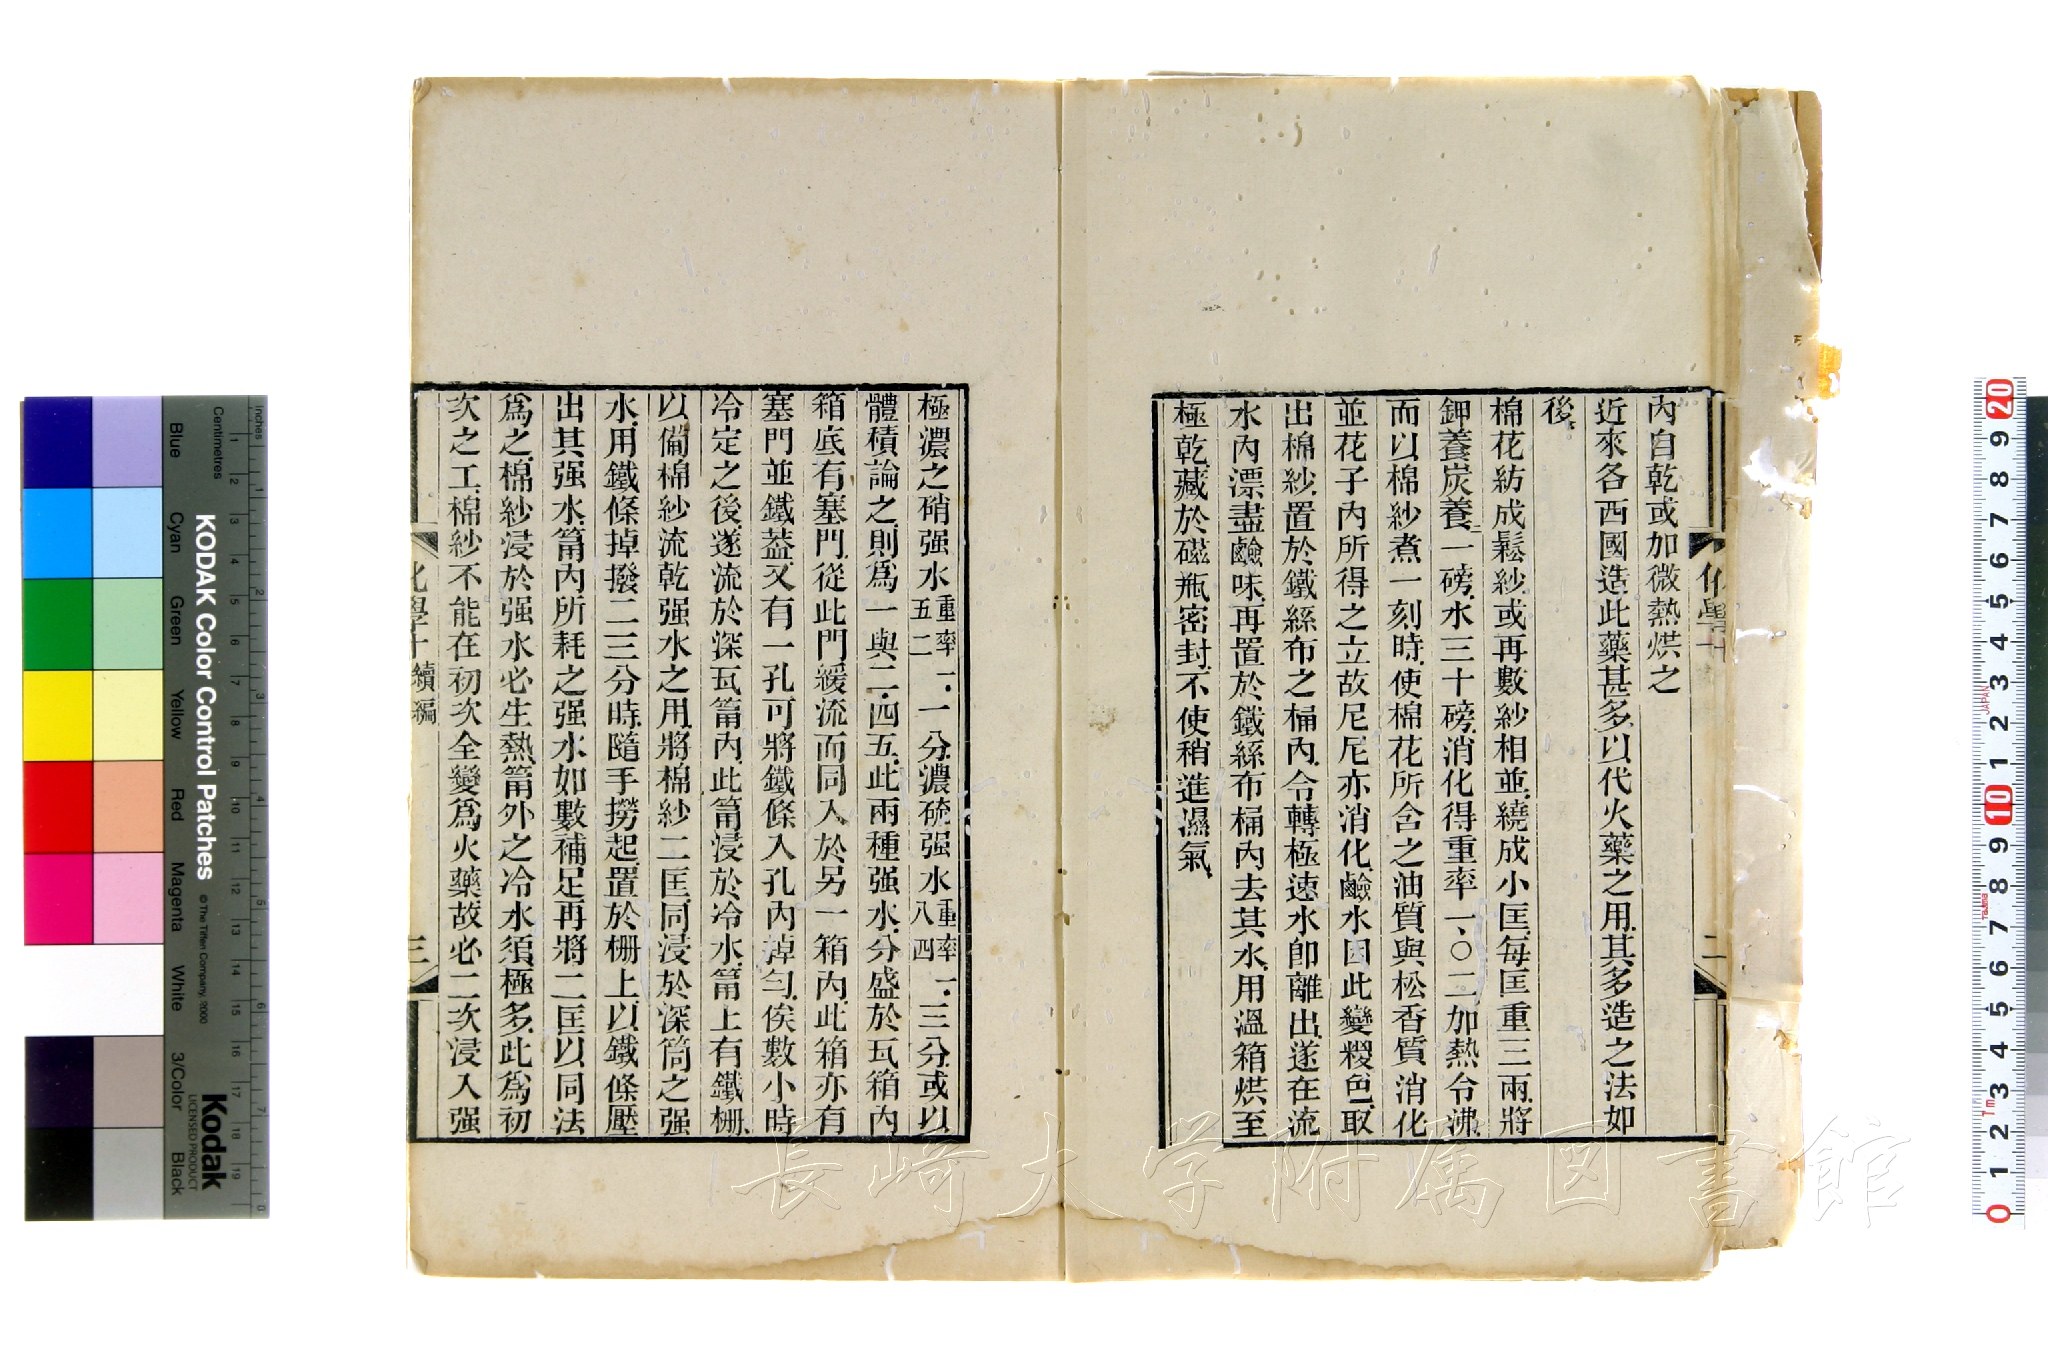 內自乾或加微熱烘之
近來各西國造此藥甚多以代火藥之用其多造之法如
後
棉花紡成鬆紗或再數紗相並繞成小匡每匡重三兩將
鉀養炭養二一磅水三十磅消化得重率一、〇二加熱令沸
而以棉紗煮一刻時使棉花所含之油質與松香質消化
並花子內所得之立故尼尼亦消化鹼水因此變椶色取
出棉紗置於鐵絲布之桶內令轉極速水卽離出遂在流
水內漂盡鹼味再置於鐵絲布桶內去其水用溫箱烘至
極乾藏於磁瓶密封不使稍進濕氣
化學十
二
極濃之硝强水重率一、五二一分濃硫强水重率一、八四三分或以
體積論之則爲一與二、四五此兩種强水分盛於瓦箱內
箱底有塞門從此門緩流而同入於另一箱內此箱亦有
塞門並鐵葢又有一孔可將鐵條入孔內掉勻俟數小時
冷定之後遂流於深瓦筩內此筩浸於冷水筩上有鐵栅
以備棉紗流乾强水之用將棉紗二匡同浸於深筒之强
水用鐵條掉撥二三分時隨手撈起置於栅上以鐵條壓
出其强水筩內所耗之强水如數補足再將二匡以同法
爲之棉紗浸於强水必生熱筩外之冷水須極多此爲初
次之工棉紗不能在初次全變爲火藥故必二次浸入强
化學十續編
三
KODAK Color Control Patches
© The Tiffen Company, 2000
Kodak
LICENSED PRODUCT
Inches
Centimetres
Blue
Cyan
Green
Yellow
Red
Magenta
White
3/Color
Black
長崎大学附属図書館